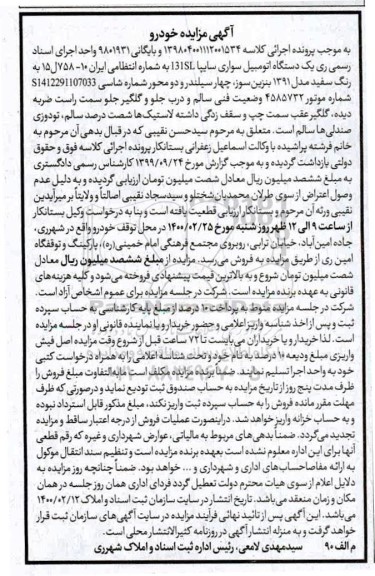 آگهی مزایده خودرو
به موجب پرونده اجرائی کلاسه ۱۳۹۸۰۴۰۰۱۱۱۲۰۰۱۵۳۴ و بایگانی ۹۸۰۱۹۳۱ واحد اجرای اسناد
رسمی ری یک دستگاه اتومبیل سواری سایپا 131SL به شماره انتظامی ایران ۱۰- ۷۵۸ل۱۵ به
رنگ سفید مدل ۱۳۹۱ بنزین سوز، چهار سیلندر و دو محور شماره شاسی S1412291107033
شماره موتور ۴۵۸۵۷۳۲ وضعیت فنی سالم و درب جلو و گلگیر جلو سمت راست ضربه
دیده، گلگیر عقب سمت چپ و سقف زدگی داشته لاستیک‌ها شصت درصد سالم، تودوزی
صندلی ها سالم است. متعلق به مرحوم سیدحسن نقیبی که در قبال بدهی آن مرحوم به
خانم فرشته پراشیده با وکالت اسماعیل زعفرانی بستانکار پرونده اجرائی کلاسه فوق و حقوق
دولتی بازداشت گردیده و به موجب گزارش مورخ ۱۳۹۹/۰۹/۲۴ کارشناس رسمی دادگستری
به مبلغ ششصد میلیون ریال معادل شصت میلیون تومان ارزیابی گردیده و به دلیل عدم
وصول اعتراض از سوی طرفان محمدیان شختلو و سیدسجاد نقیبی اصالتاً و ولایتاً بر میرآیدین
نقیبی ورثه آن مرحوم و بستانکار ارزیابی قطعیت یافته است و بنا به درخواست وکیل بستانکار
از ساعت ۹ الی ۱۲ ظهر روز شنبه مورخ ۱۴۰۰/۰۲/۲۵ در محل توقف خودرو واقع در شهرری،
جاده امین‌آباد، خیابان ترابی، روبروی مجتمع فرهنگی امام خمینی(ره)، پارکینگ و توقفگاه
امین ری از طریق مزایده به فروش می‌رسد. مزایده از مبلغ ششصد میلیون ریال معادل
شصت میلیون تومان شروع و به بالاترین قیمت پیشنهادی فروخته می‌شود و کلیه هزینه‌های
قانونی به عهده برنده مزایده است. شرکت در جلسه مزایده برای عموم اشخاص آزاد است.
شرکت در جلسه مزایده منوط به پرداخت ۱۰ درصد از مبلغ پایه کارشناسی به حساب سپرده
ثبت و پس از اخذ شناسه واریز اعلامی و حضور خریدار و یا نماینده قانونی او در جلسه مزایده
است. لذا خریدار و یا خریداران می‌بایست تا ۷۲ ساعت قبل از شروع وقت مزایده اصل فیش
واریزی مبلغ ودیعه ۱۰ درصد به نام خود و تحت شناسه اعلامی را به همراه درخواست کتبی
خود به واحد اجرا تسلیم نمایند. ضمناً برنده مزایده مکلف است مابه‌التفاوت مبلغ فروش را
ظرف مدت پنج روز از تاریخ مزایده به حساب صندوق ثبت تودیع نماید و درصورتی که ظرف
مهلت مقرر مانده فروش را به حساب سپرده ثبت واریز نکند، مبلغ مذکور قابل استرداد نبوده
و به حساب خزانه واریز خواهد شد. دراینصورت عملیات فروش از درجه اعتبار ساقط و مزایده
تجدید می‌گردد. ضمناً بدهی‌های مربوط به مالیاتی، عوارض شهرداری و غیره که رقم قطعی
آنها برای این اداره معلوم نشده است بعهده برنده مزایده است و تنظیم سند انتقال موکول
به ارائه مفاصاحساب‌های اداری و شهرداری و ... خواهد بود. ضمناً چنانچه روز مزایده به
دلایل اعلام از سوی هیات محترم دولت تعطیل گردد فردای اداری همان روز جلسه در همان
مکان و زمان منعقد می‌باشد. تاریخ انتشار در سایت سازمان ثبت اسناد و املاک ۱۴۰۰/۰۲/۱۲
می‌باشد. این آگهی پس از تائید نهائی فرآیند مزایده در سایت آگهی‌های سازمان ثبت قرار
خواهد گرفت و به منزله انتشار آگهی در روزنامه کثیرالانتشار محلی است.
م الف ۹۰ سیدمهدی لامعی، رئیس اداره ثبت اسناد و املاک شهرری